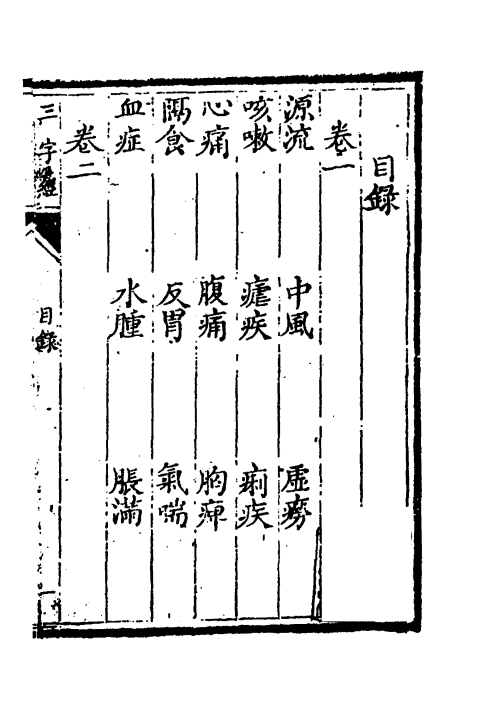 目錄
卷一
源流　中風　虛癆
咳嗽　瘧疾　痢疾
心痛　腹痛　胸痺
隔食　反胃　氣喘
血症　水腫　脹滿
卷二
三字經　目錄